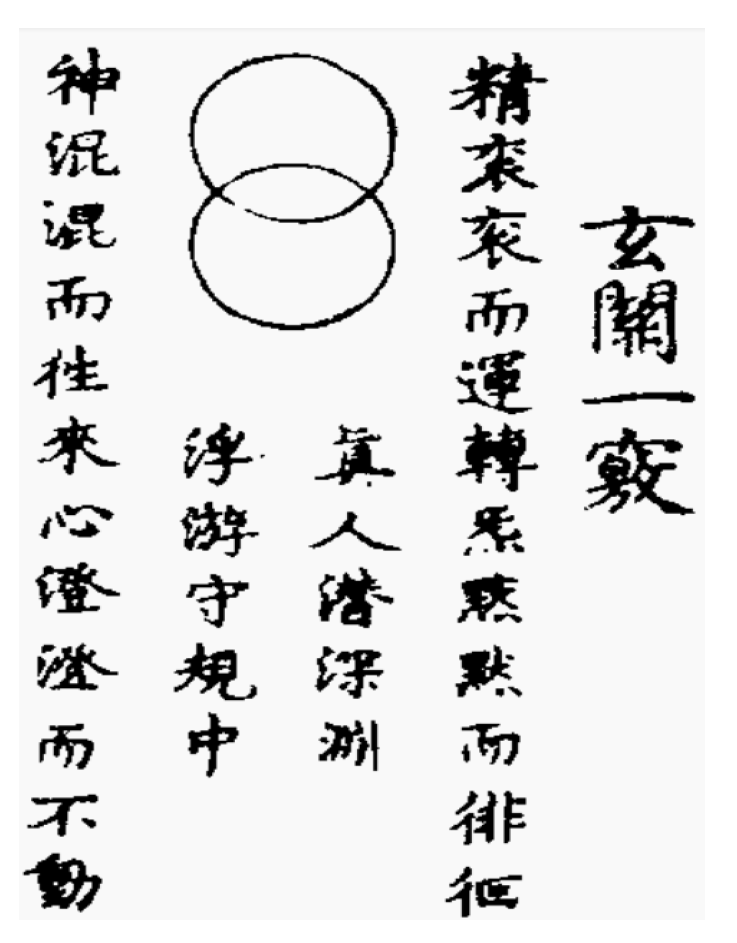 玄關一竅
精衮衮而運轉炁默默而徘徊
眞人潛深淵
浮游守規中
神混混而徃來心澄澄而不動